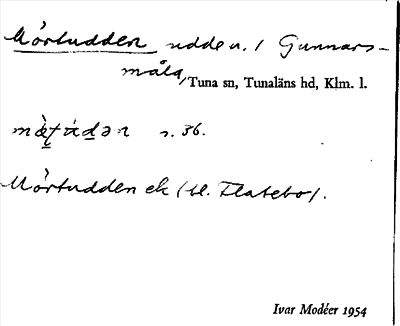 Mörtudden udde n. i Gunnars-
måla, Tuna sn, Tunaläns hd, Klm. l.
s. 36.
Mörtudden ek (bl. Flatebo).
Ivar Modéer 1954